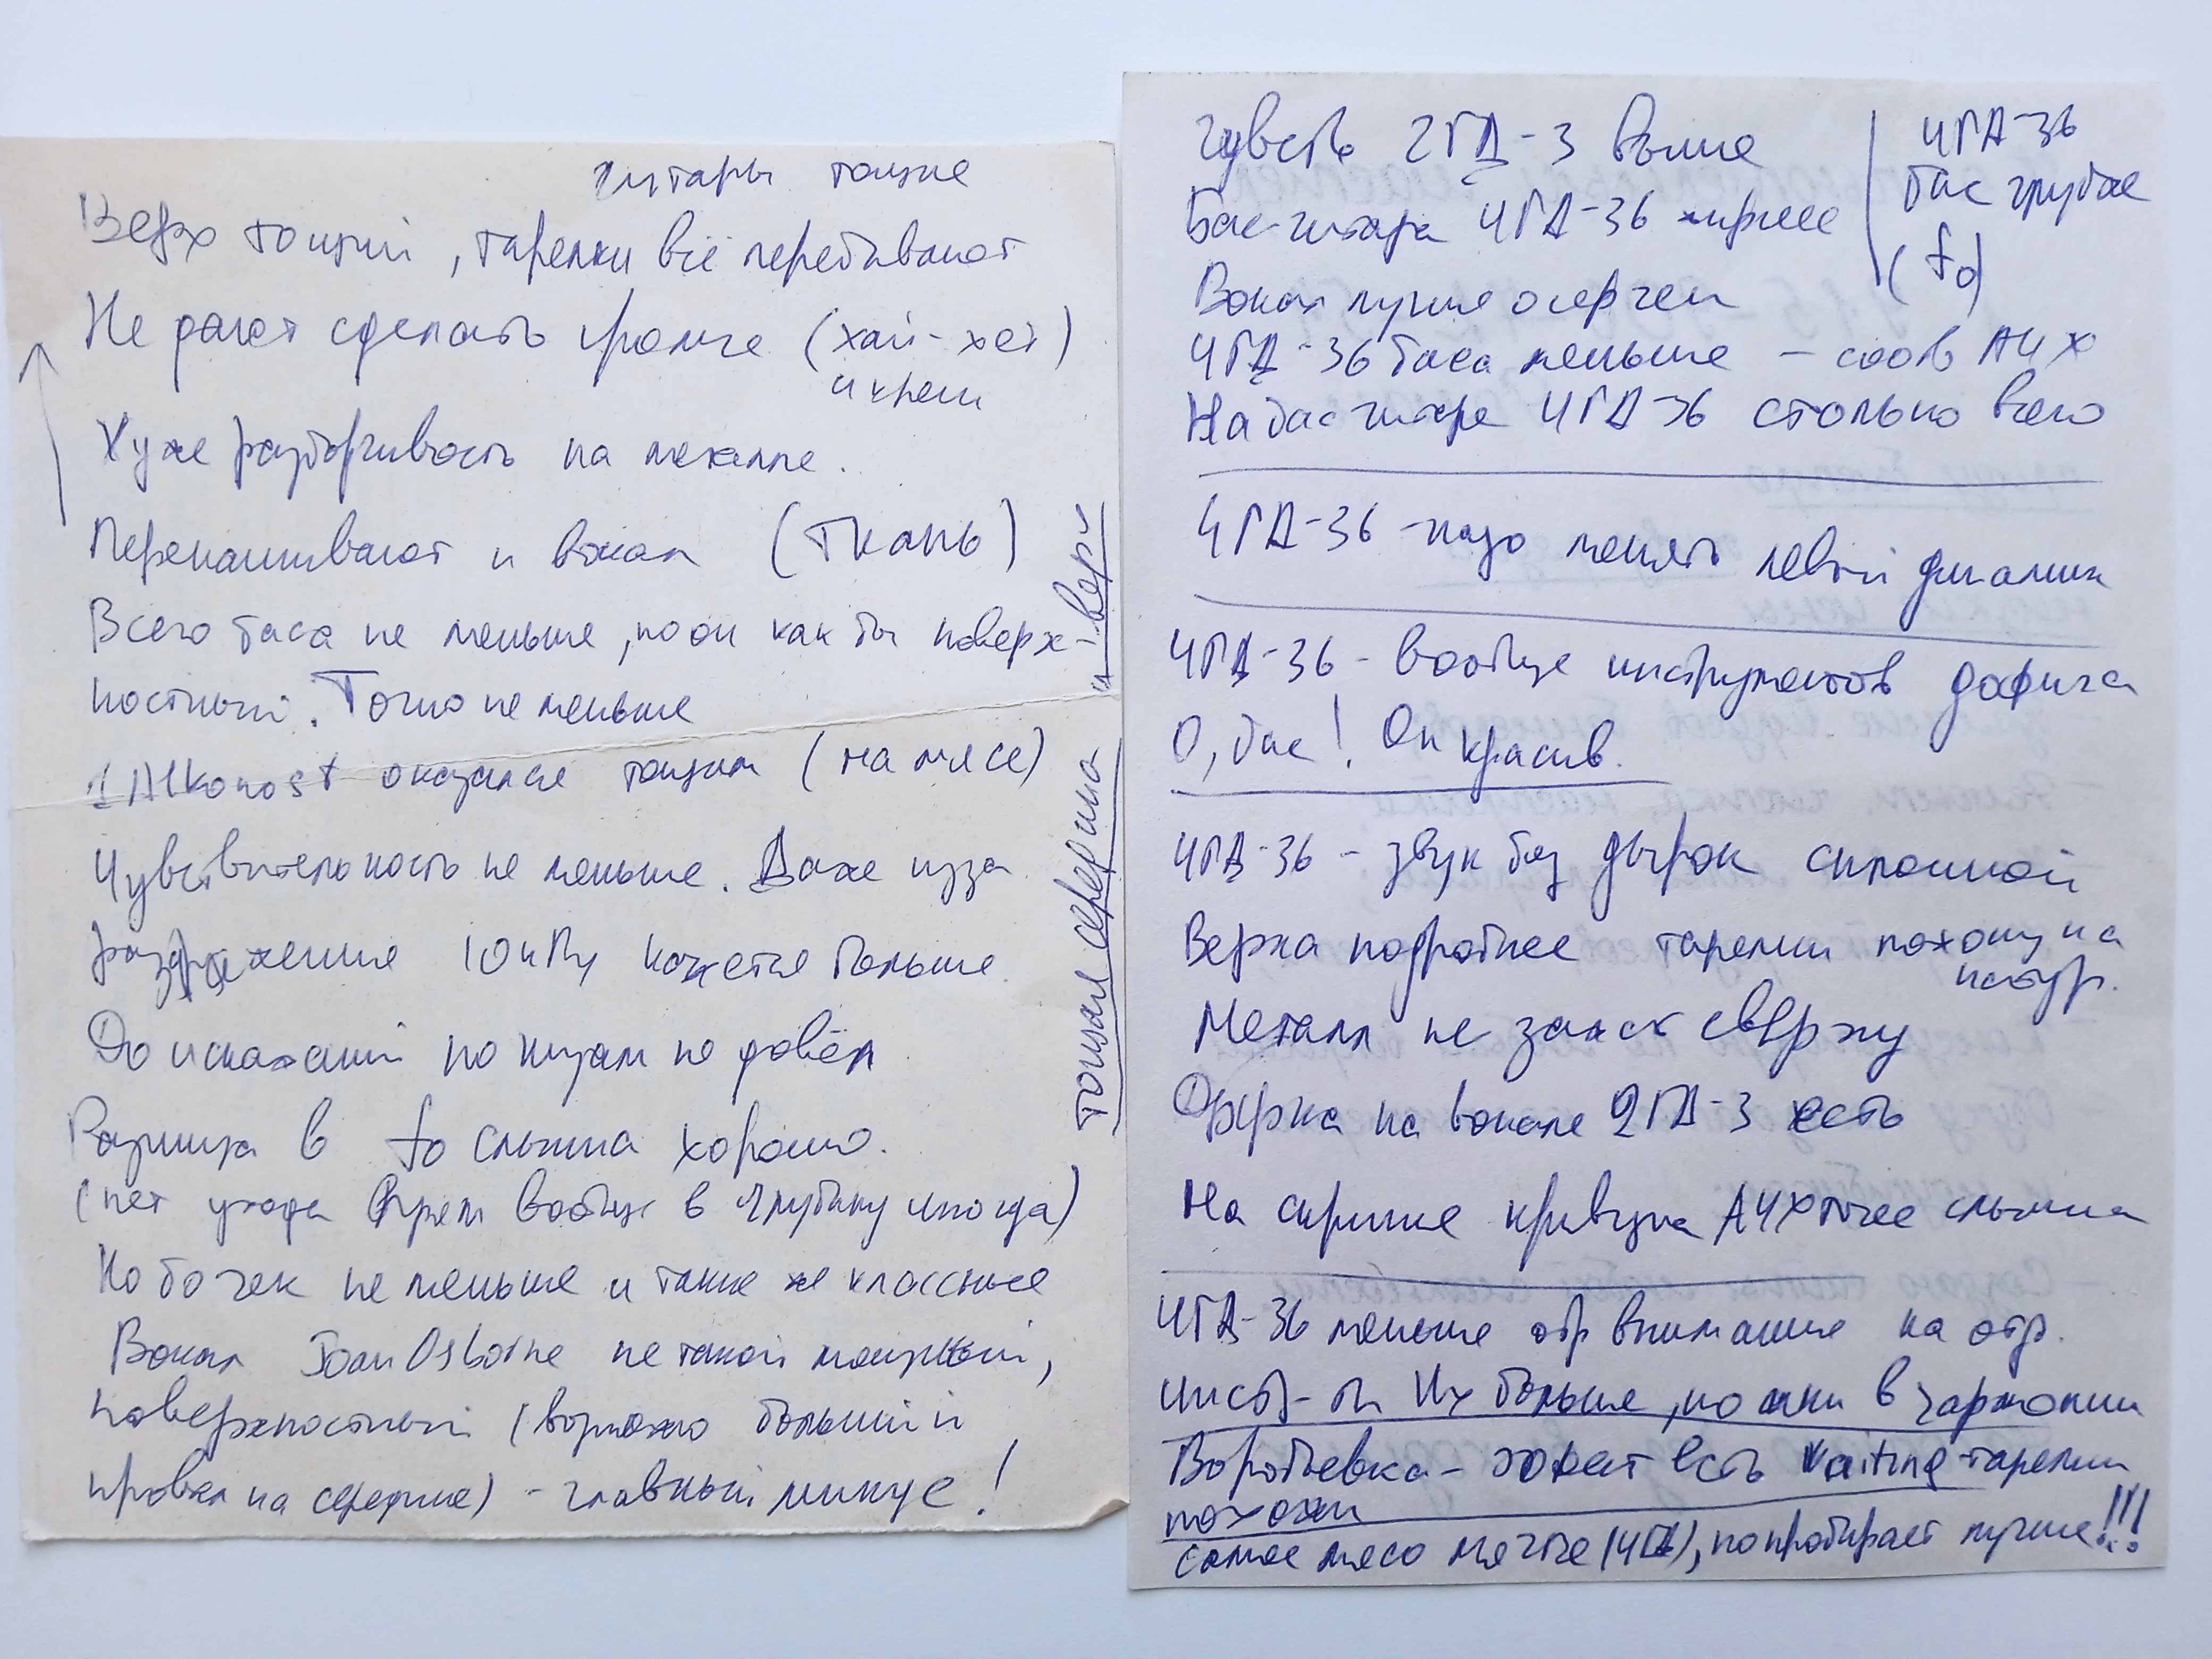 гитары тощие
Верх тощий, тарелки всё перебивают
Не дают сделать громче (хай-хет)
и креш
Хуже разборчивость на металле.
Перешивают и вокал (ткань)
Всего баса не меньше, но он как бы поверх-
ностный. Точно не меньше
Alkonost оказался тощим (на мясе)
Чувствительность не меньше. Даже из за
раздражения 10 кГц кажется больше.
До искажений по низам не довёл
Разница в fo слышна хорошо.
(нет ухода вообще в глубину иногда)
Но бочек не меньше и такие же классные
Вокал Joan Osborne не такой мощный,
поверхностный (возможно больший
провал на середине) - главный минус!
тощая середина и верх
Чувств 2ГД-3 выше
Бас-гитара 4ГД-36 жирнее
Вокал лучше очерчен
4ГД-36 баса меньше - соотв АЧХ
На бас гитаре 4ГД-36 столько всего
4ГД-36
бас глубже
(fo)
4ГД-36 - надо менять левый динамик
4ГД-36 - вообще инструментов дофига
О, бас! Он красив.
4ГД-36 - звук без дырок сплошной
Верха подробнее тарелки похожи на
натур.
Металл не зажат сверху
Дырка на вокале 2ГД-3 есть
На скрипке кривизна АЧХ тоже слышна
4ГД-36 меньше обр внимание на отр.
инстр-ты Их больше, но они в гармонии
Воробьевка - эффект есть Waiting - тарелки
похожи
самое мясо мягче (4ГД), но пробирает лучше!!!